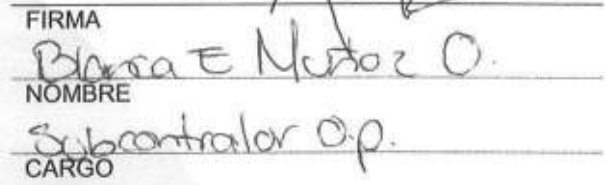 FIRMA
Blanca E Muñoz O.
NOMBRE
Subcontralor O.p.
CARGO